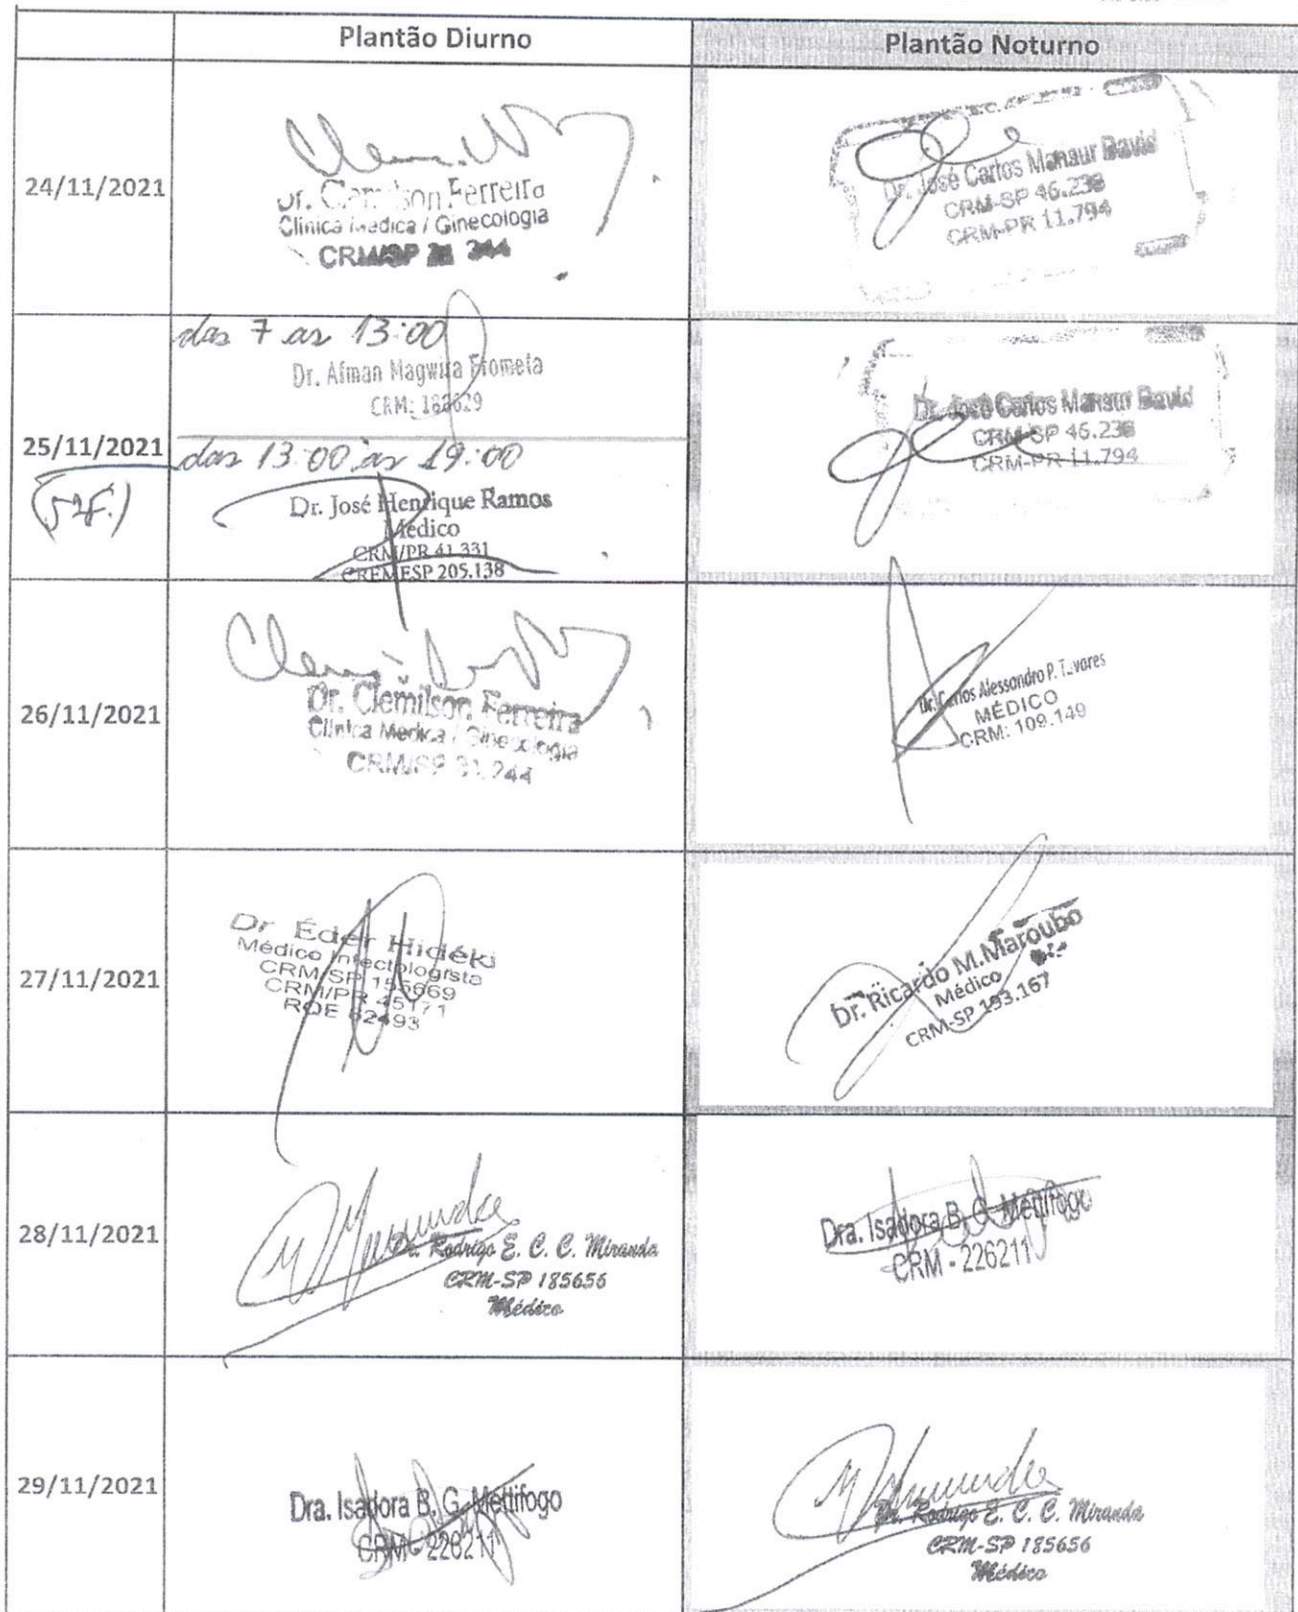 Plantão Diurno
Plantão Noturno
24/11/2021
Dr. Clemilson Ferreira
Clinica Medica / Ginecologia
CRM/SP 244
Dr. José Carlos Mansur David
CRM-SP 46.238
CRM-PR 11.794
25/11/2021
(5ªf.)
das 7 as 13:00
Dr. Afman Magwira Frometa
CRM:
das 13:00 às 19:00
Dr. José Henrique Ramos
Médico
CRM/PR 41.331
CREMESP 205.138
Dr. José Carlos Mansur David
CRM-SP 46.238
CRM-PR 11.794
26/11/2021
Dr. Clemilson Ferreira
Clinica Medica / Ginecologia
CRM/SP 31.244
Dr. Carlos Alessandro P. Tavares
MÉDICO
CRM: 109.149
27/11/2021
Dr Éder Hidéki
Médico Infectologista
CRM/SP 155669
CRM/PR 45171
RQE 62493
Dr. Ricardo M. Maroubo
Médico
CRM-SP 193.167
28/11/2021
Dr. Rodrigo E. C. C. Miranda
CRM-SP 185656
Médico
Dra. Isadora B. G. Mettifogo
CRM - 226211
29/11/2021
Dra. Isadora B. G. Mettifogo
CRM - 226211
Dr. Rodrigo E. C. C. Miranda
CRM-SP 185656
Médico